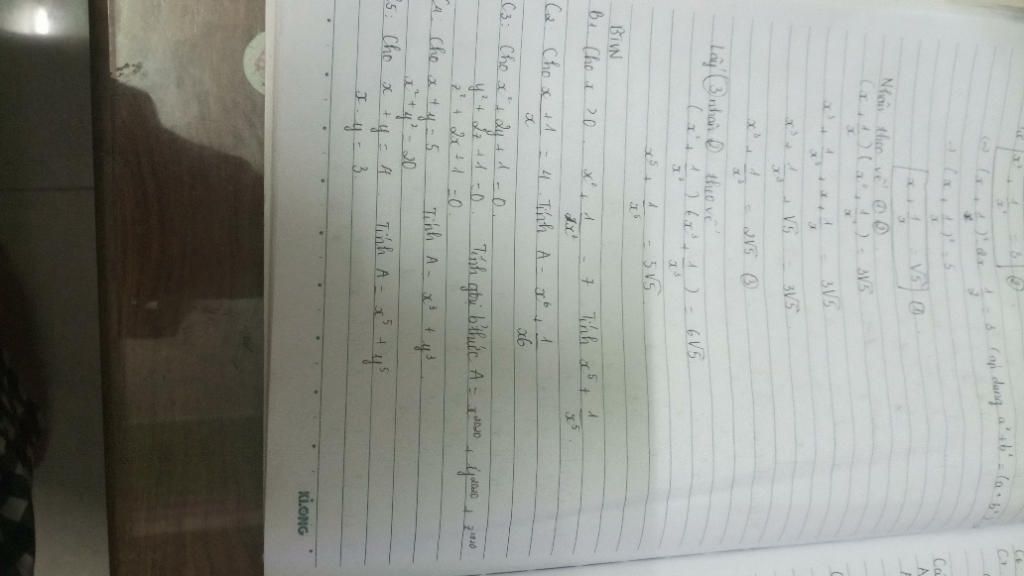 x² + 1/x² = 3 ②
(=) (x + 1/x)² - 2x · 1/x = 3 (vận dụng a² + b² = (a + b)²
=) (x + 1/x)² = 5
x + 1/x = √5 ①
Nhân theo vế ① ②
(x + 1/x) (x² + 1/x²) = 3√5
x³ + 1/x³ + x + 1/x = 3√5
x³ + 1/x³ + √5 = 3√5
x³ + 1/x³ = 2√5 ③
Lấy ③ nhân ② theo vế
(x² + 1/x²) (x³ + 1/x³) = 6√5
x⁵ + 1/x⁵ = 5√5
BTVN
B1 Cho x > 0. x² + 1/x² = 7 Tính x⁵ + 1/x⁵.
C2 Cho x + 1/x = 4. Tính A = x⁶ + 1/x6
C3: Cho x² + 2y + 1 = 0.
y² + 2z + 1 = 0. Tính giá trị biểu thức A = x²⁰²⁰ + y²⁰²⁰ + z²⁰²⁰
z² + 2x + 1 = 0.
Cho x + y = 5 Tính A = x³ + y³
x² + y² = 20
5: Cho x + y = 4 Tính A = x⁵ + y⁵
x - y = 3
XILONG